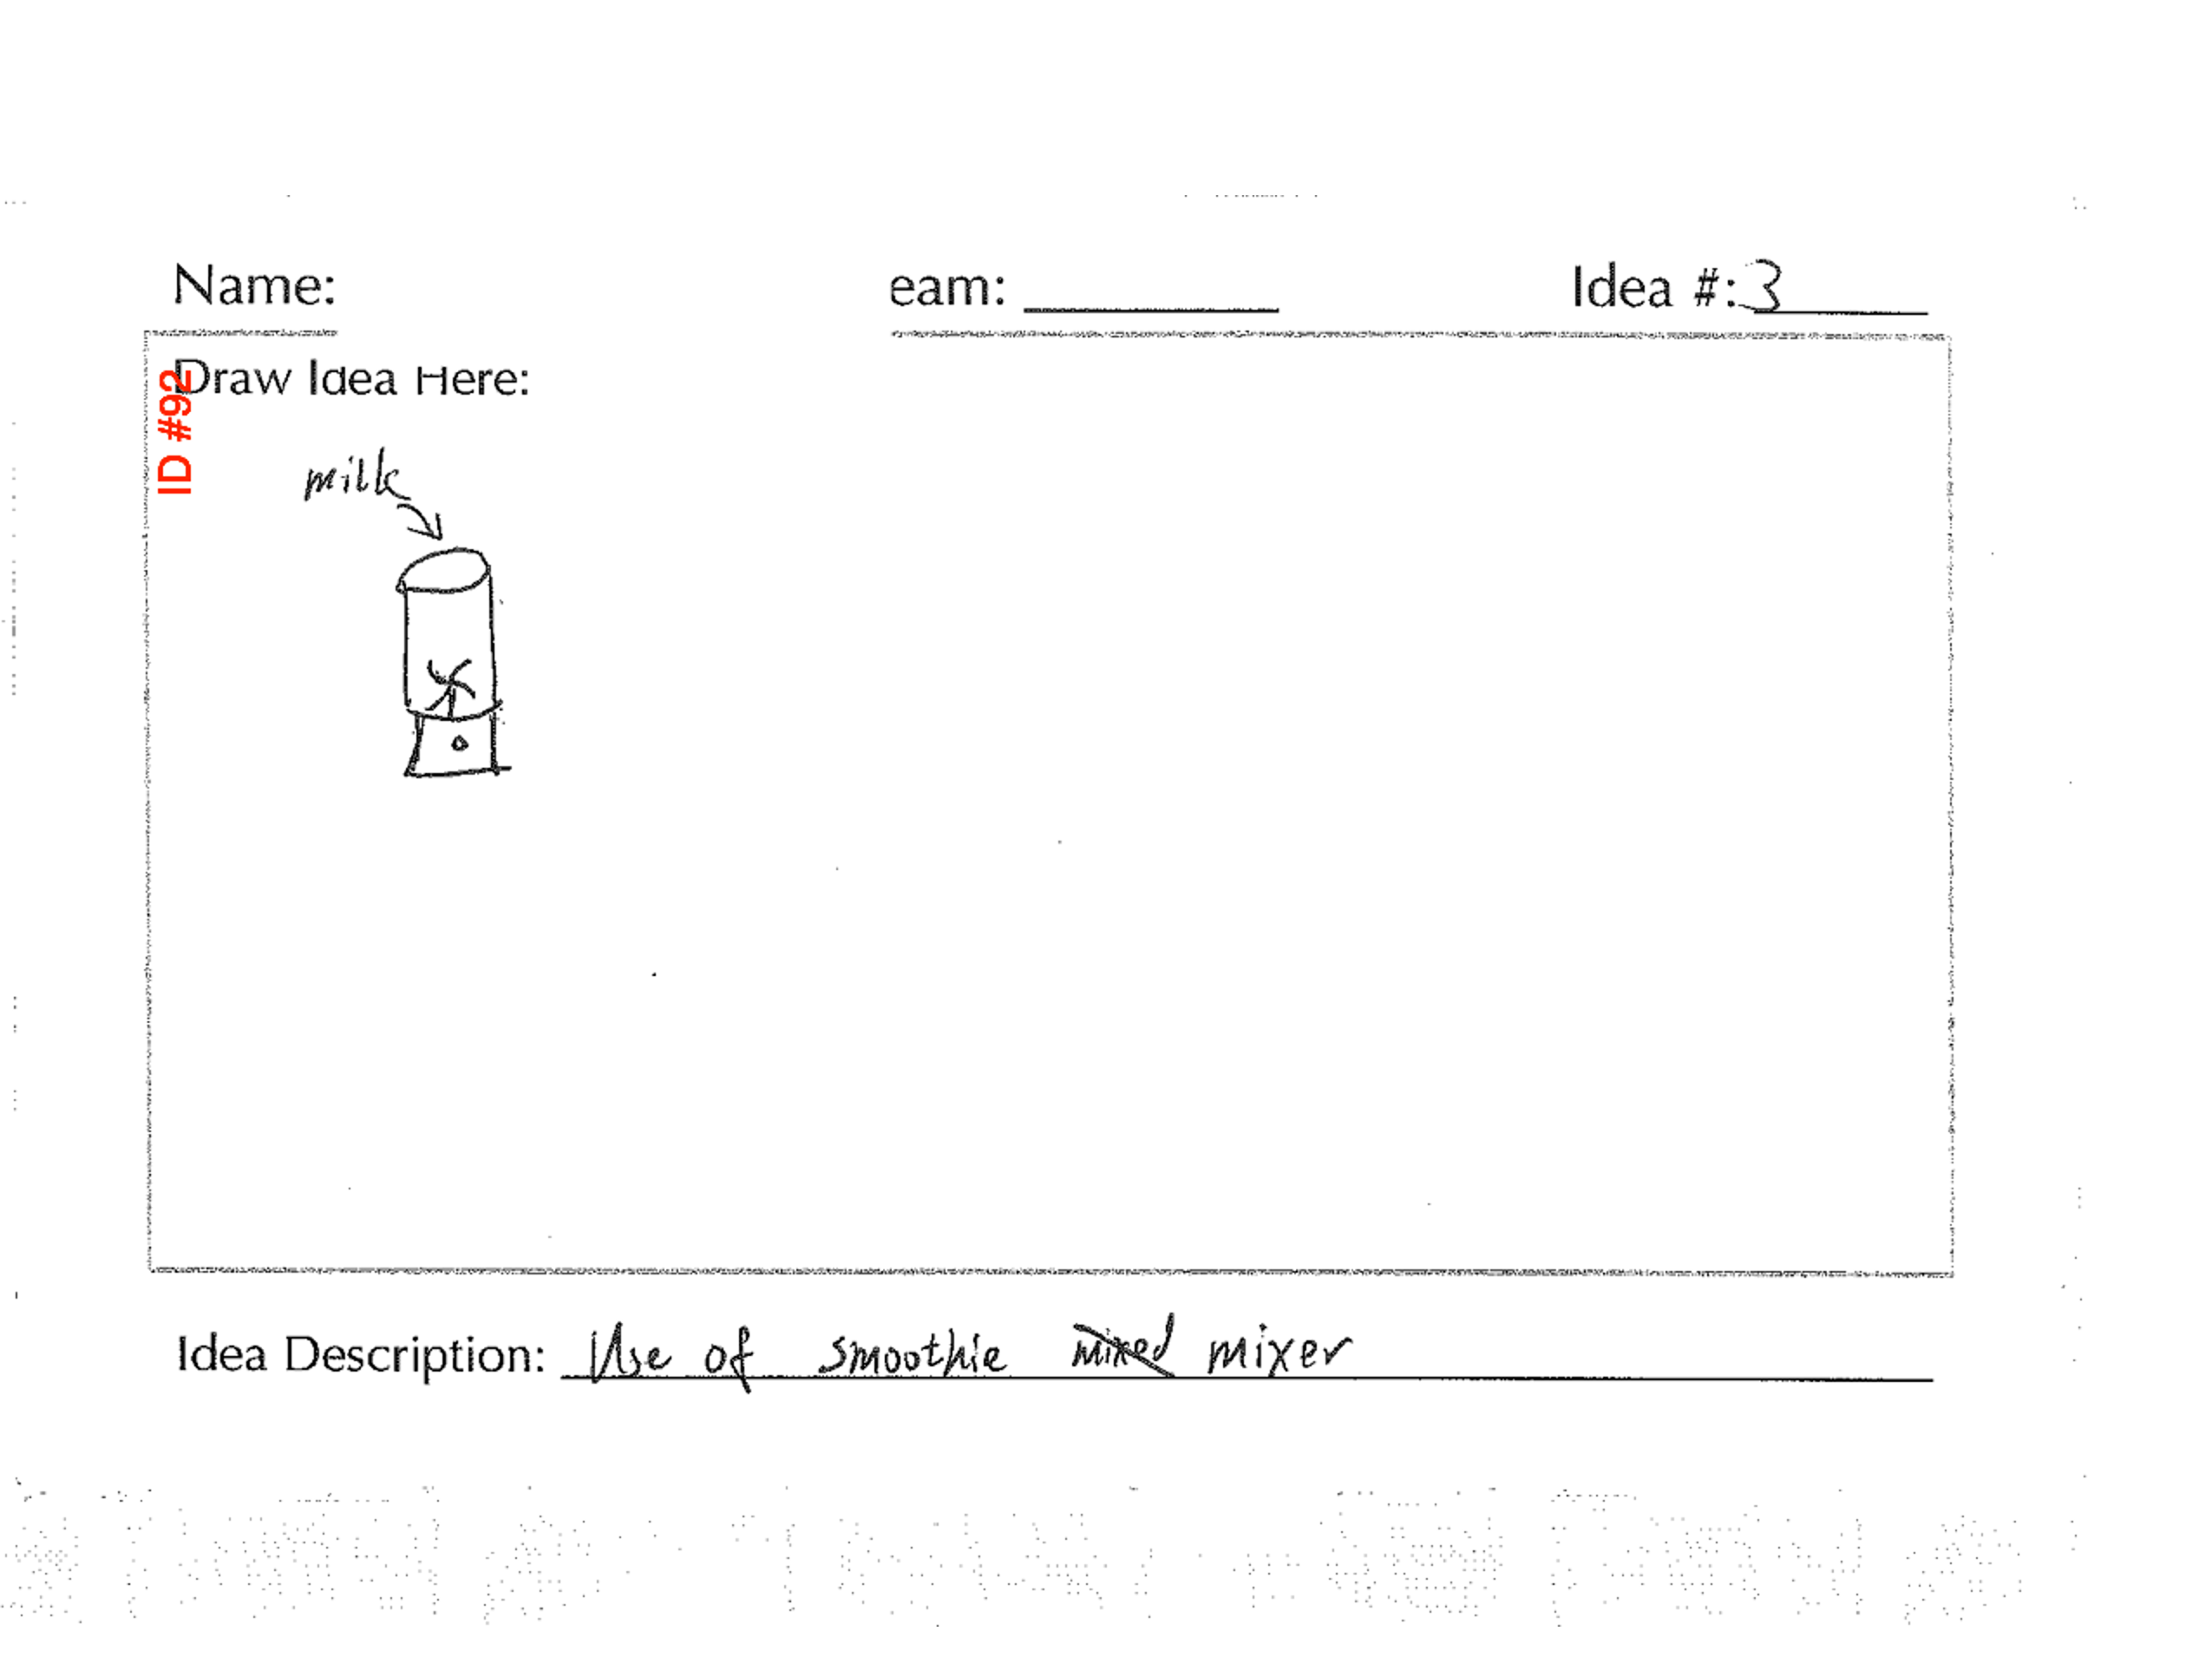 Name: eam: Idea #: 3
Draw Idea Here:
ID #92
milk
Idea Description: Use of smoothie mixed mixer